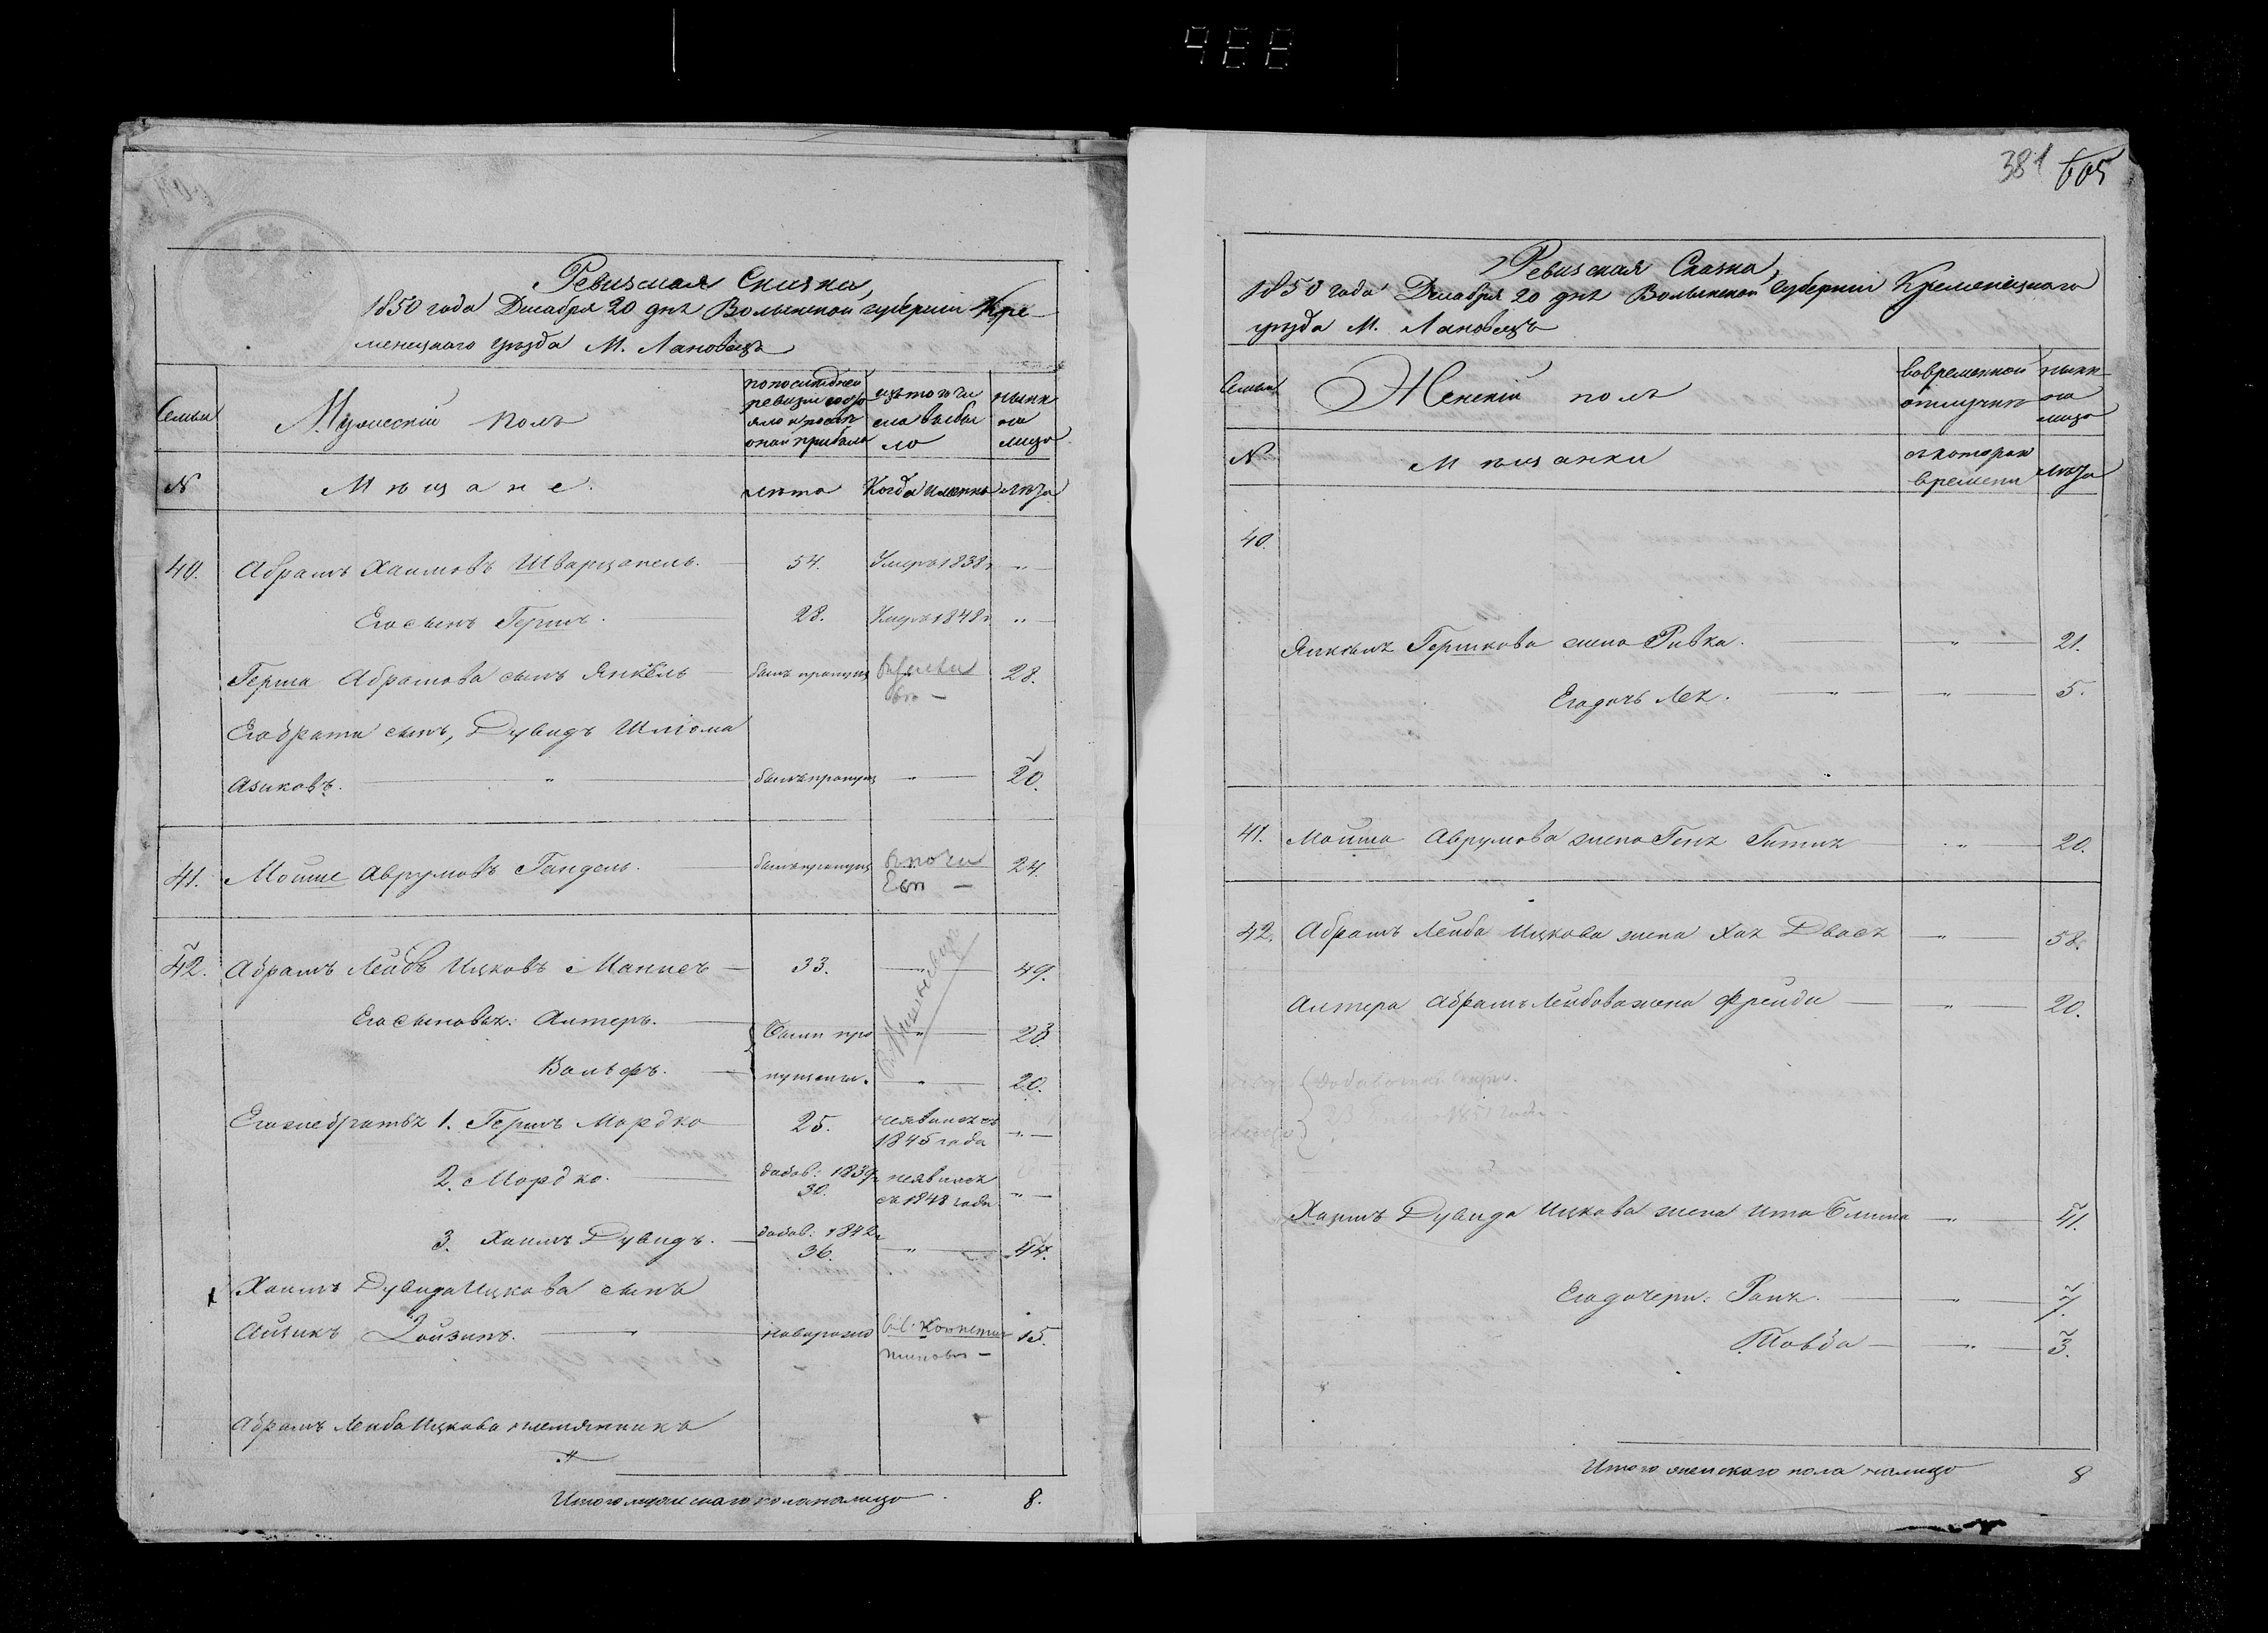 488
Ревизская Сказка,
1850 года Декабря 20 дня Волынской губернии Кре-
менецкаго уезда М. Лановецъ
Семьи
Мужескій полъ
по последней ревизіи состо яло и после оной прибыло
изъ того числа выбы ло
ныне на лицо
N
Мѣщане.
лѣта
Когда именно
лѣта
40. Абрамъ Хаимовъ Шварцапель. 54. Умеръ 1838г "
Его сынъ Гершъ. 28. Умеръ 1848г "
Герша Абрамова сынъ Янкель былъ пропущ 28.
Его брата сынъ, Дувидъ Шліома
Азиковъ. " былъ пропущ " 20.
41. Мошие Аврумовъ Гандель. былъ пропущ 24.
42. Абрамъ Лейбъ Ицковъ Маннес 33. " 49.
Его сыновья: Алтеръ. Были про " 23.
Вольфъ. пущены. " 20.
Его же братья 1. Гершъ Мордко 25. неявился съ 1845 года "
2. Мордко. добав: 1839г 30. неявился съ 1848 года "
3. Хаимъ Дувидъ. добав: 1842г 36. " 44.
Хаимъ Дувида Ицкова сынъ
Айзикъ Зойзипъ. " новорожд 15.
Абрамъ Лейба Ицкова племянника
Итого мужескаго пола налицо 8.
381 605
Ревизская Сказка,
1850 года Декабря 20 дня Волынской губерніи Кременецкаго
уезда М. Лановецъ
Семьи
Женскій полъ
во временной отлучке
ныне на лицо
N
Мѣщанки
съ которого времени
лѣта
40.
Янкеля Гершкова жена Ривка. " 21.
Его дочь Лея. " " 5.
41. Мошка Аврумова жена Геня Гитля " 20.
42. Абрамъ Лейба Ицкова жена Хая Двося " 58.
Алтера Абрамъ Лейбова жена Фрейда " 20.
Хаимъ Дувида Ицкова жена Ита Блима " 41.
Его дочери: Раня. " 7.
Товба " 3.
Итого женскаго пола налицо 8